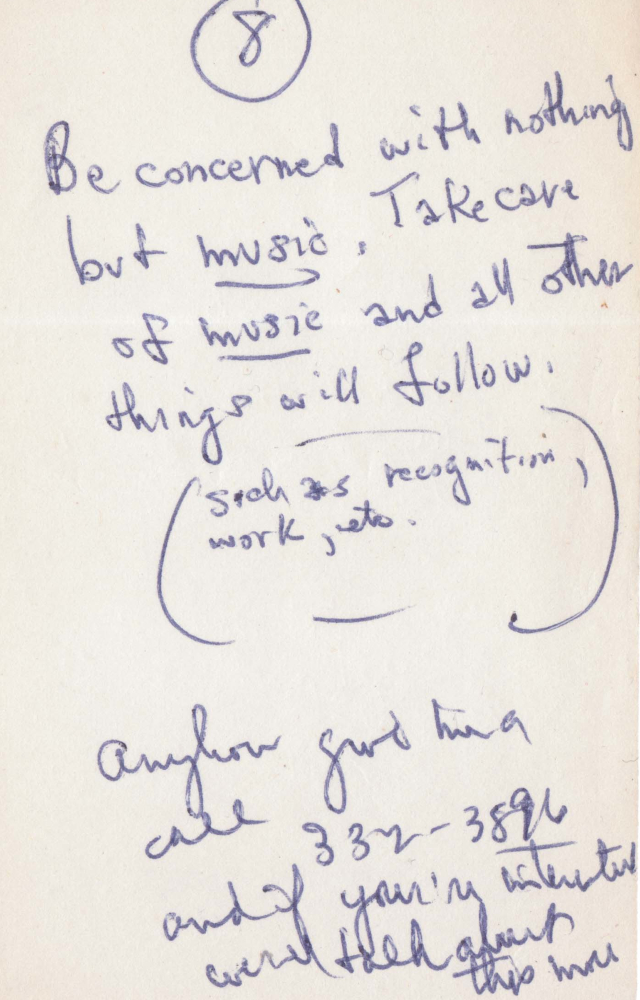 8
Be concerned with nothing
but music. Take care
of music and all other
things will follow.
(such as recognition,
work, etc.)
Anyhow give him a
call 332-3896
and if you're interested
we'll talk about
this more